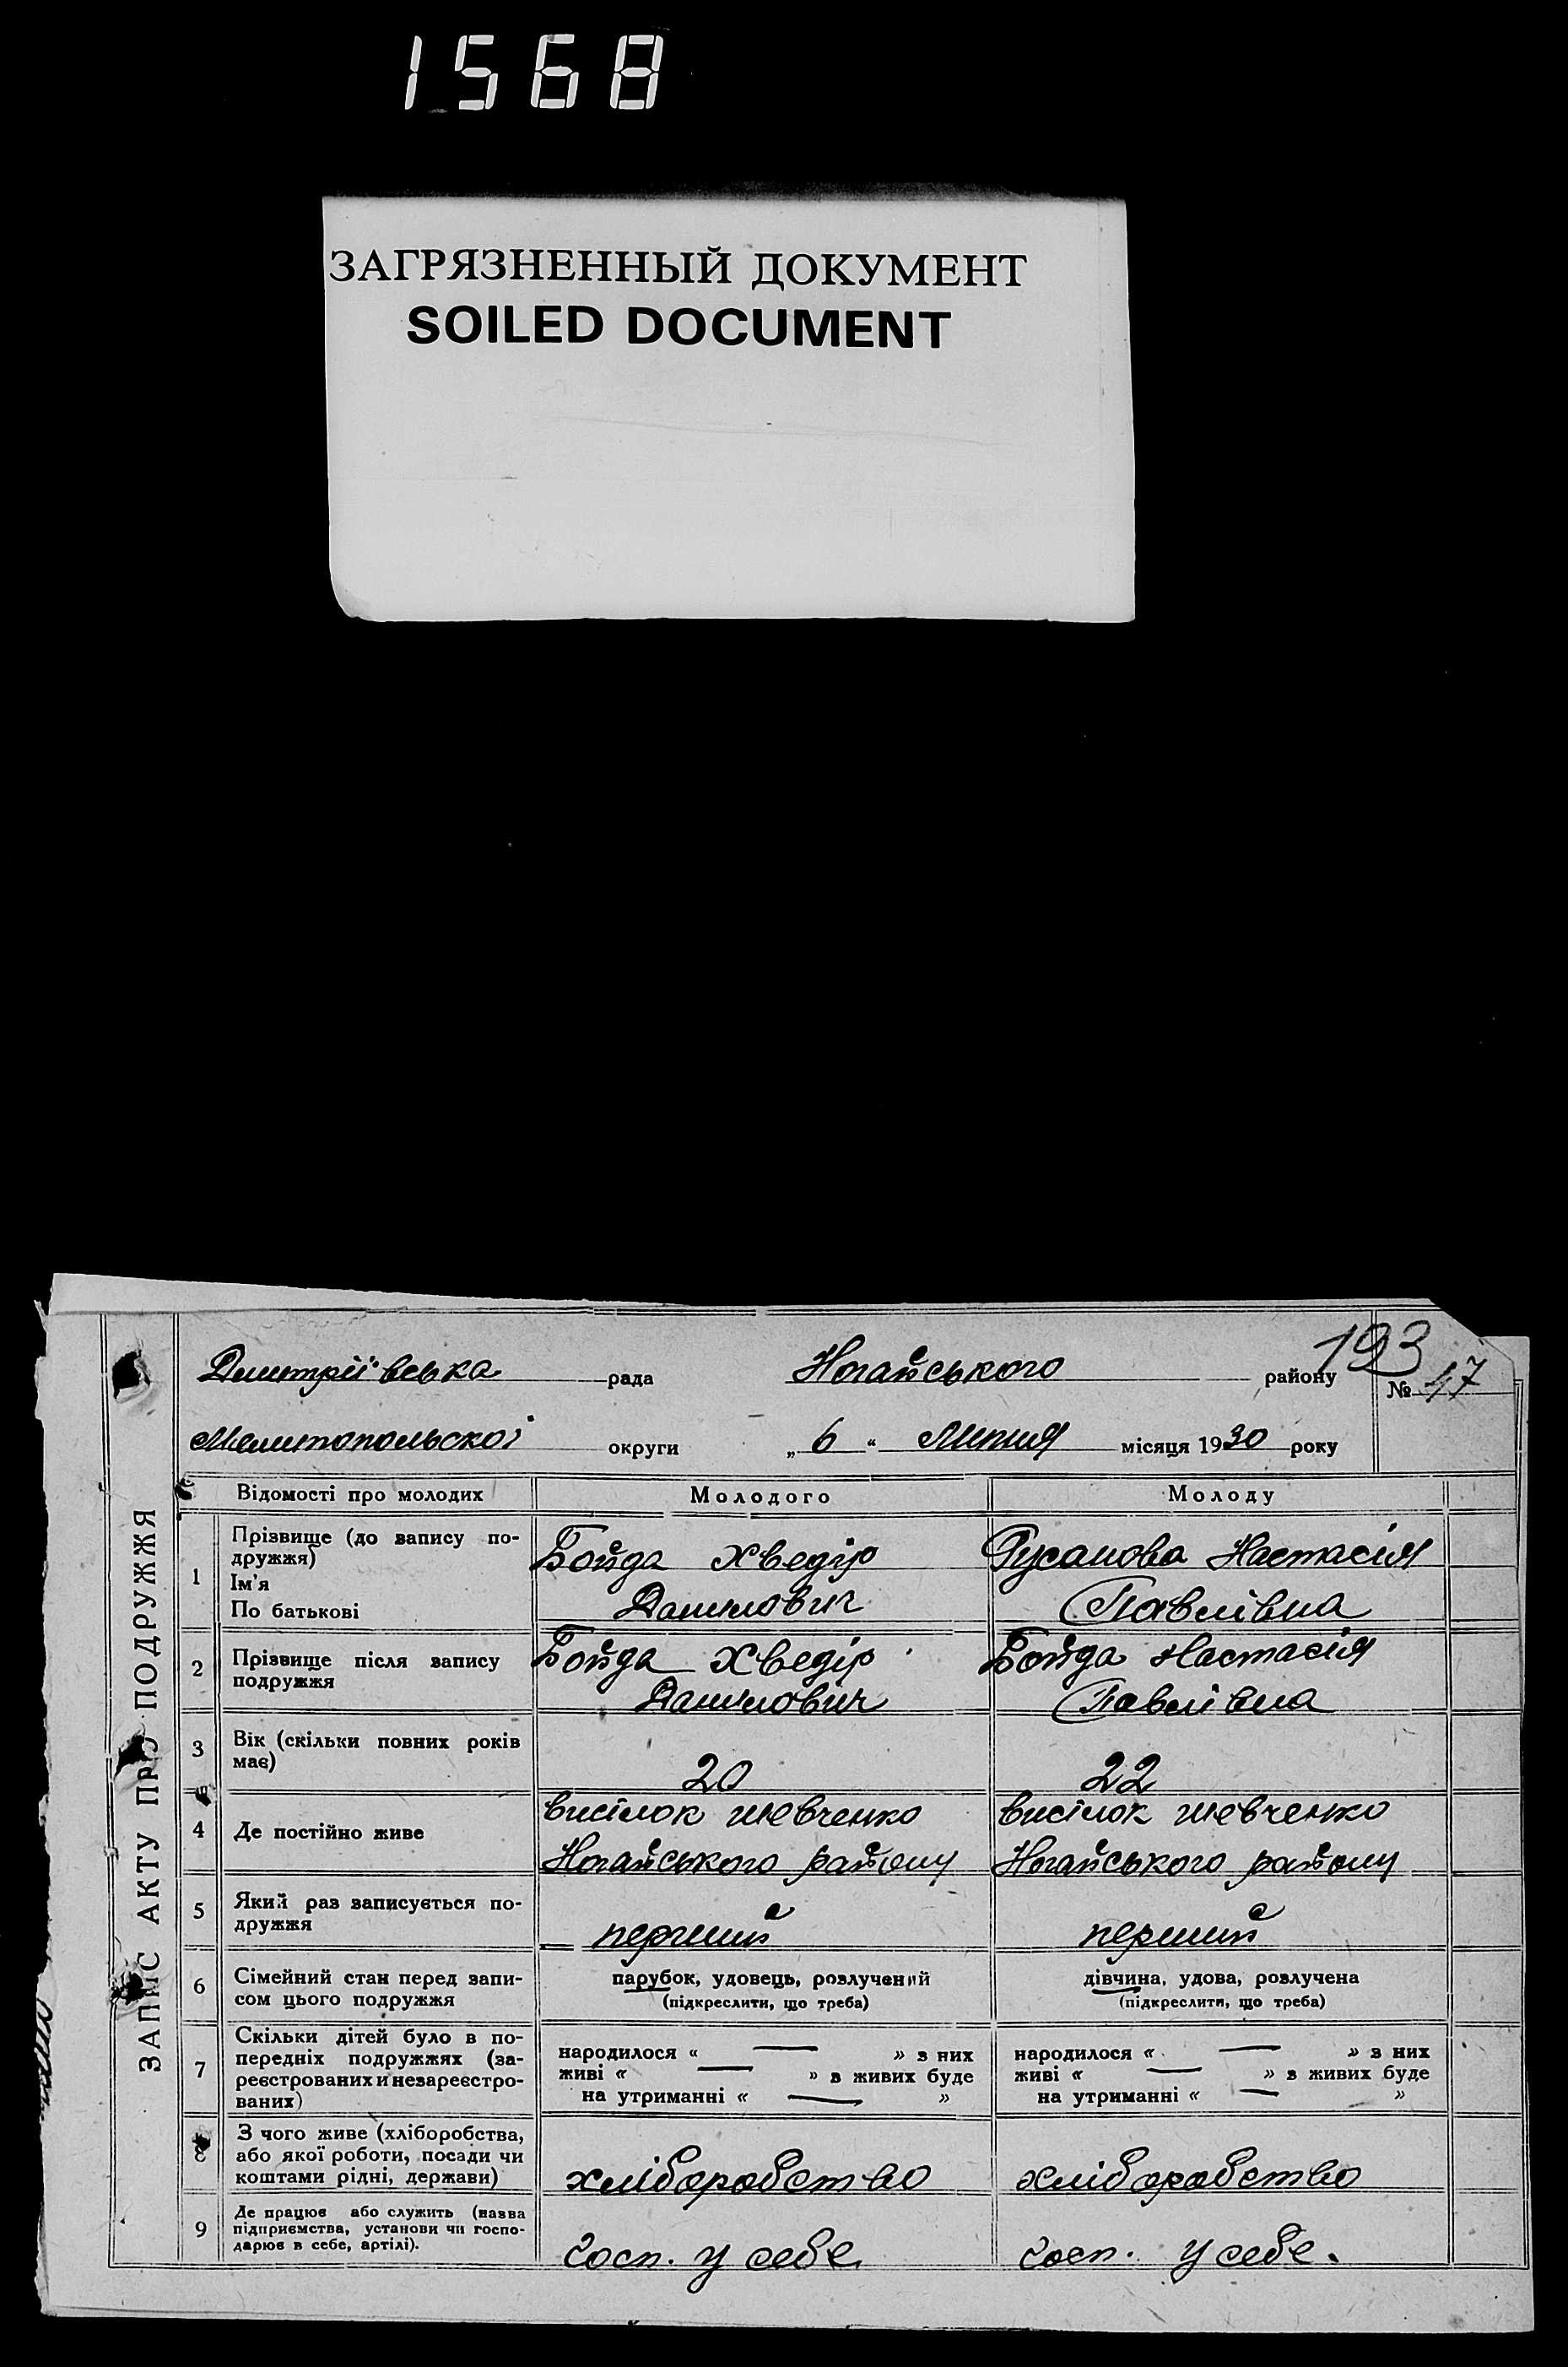 1568
ЗАГРЯЗНЕННЫЙ ДОКУМЕНТ
SOILED DOCUMENT
193
Дмитріївська рада Ногайського району № 47
Мелитопольскої округи „ 6 “ Липня місяця 1930 року
ЗАПИС АКТУ ПРО ПОДРУЖЖЯ
Відомості про молодих Молодого Молоду
1 Прізвище (до запису подружжя)
Ім'я
По батькові
Бойда Хведір
Данилович
Русанова Настасія
Павлівна
2 Прізвище після запису
подружжя
Бойда Хведір
Данилович
Бойда Настасія
Павлівна
3 Вік (скільки повних років
має)
20 22
4 Де постійно живе
висілок Шевченко
Ногайського району
висілок Шевченко
Ногайського району
5 Який раз записується по-
дружжя
перший перший
6 Сімейний стан перед запи-
сом цього подружжя
парубок, удовець, розлучений
(підкреслити, що треба)
дівчина, удова, розлучена
(підкреслити, що треба)
7 Скільки дітей було в по-
передніх подружжях (за-
реєстрованих и незареєстро-
ваних)
народилося « — » з них
живі « — » з живих буде
на утриманні « — »
народилося « — » з них
живі « — » з живих буде
на утриманні « — »
8 З чого живе (хліборобства,
або якої роботи, посади чи
коштами рідні, держави)
хліборобство хліборобство
9 Де працює або служить (назва
підприємства, установи чи госпо-
дарює в себе, артілі).
госп. у себе госп. у себе.